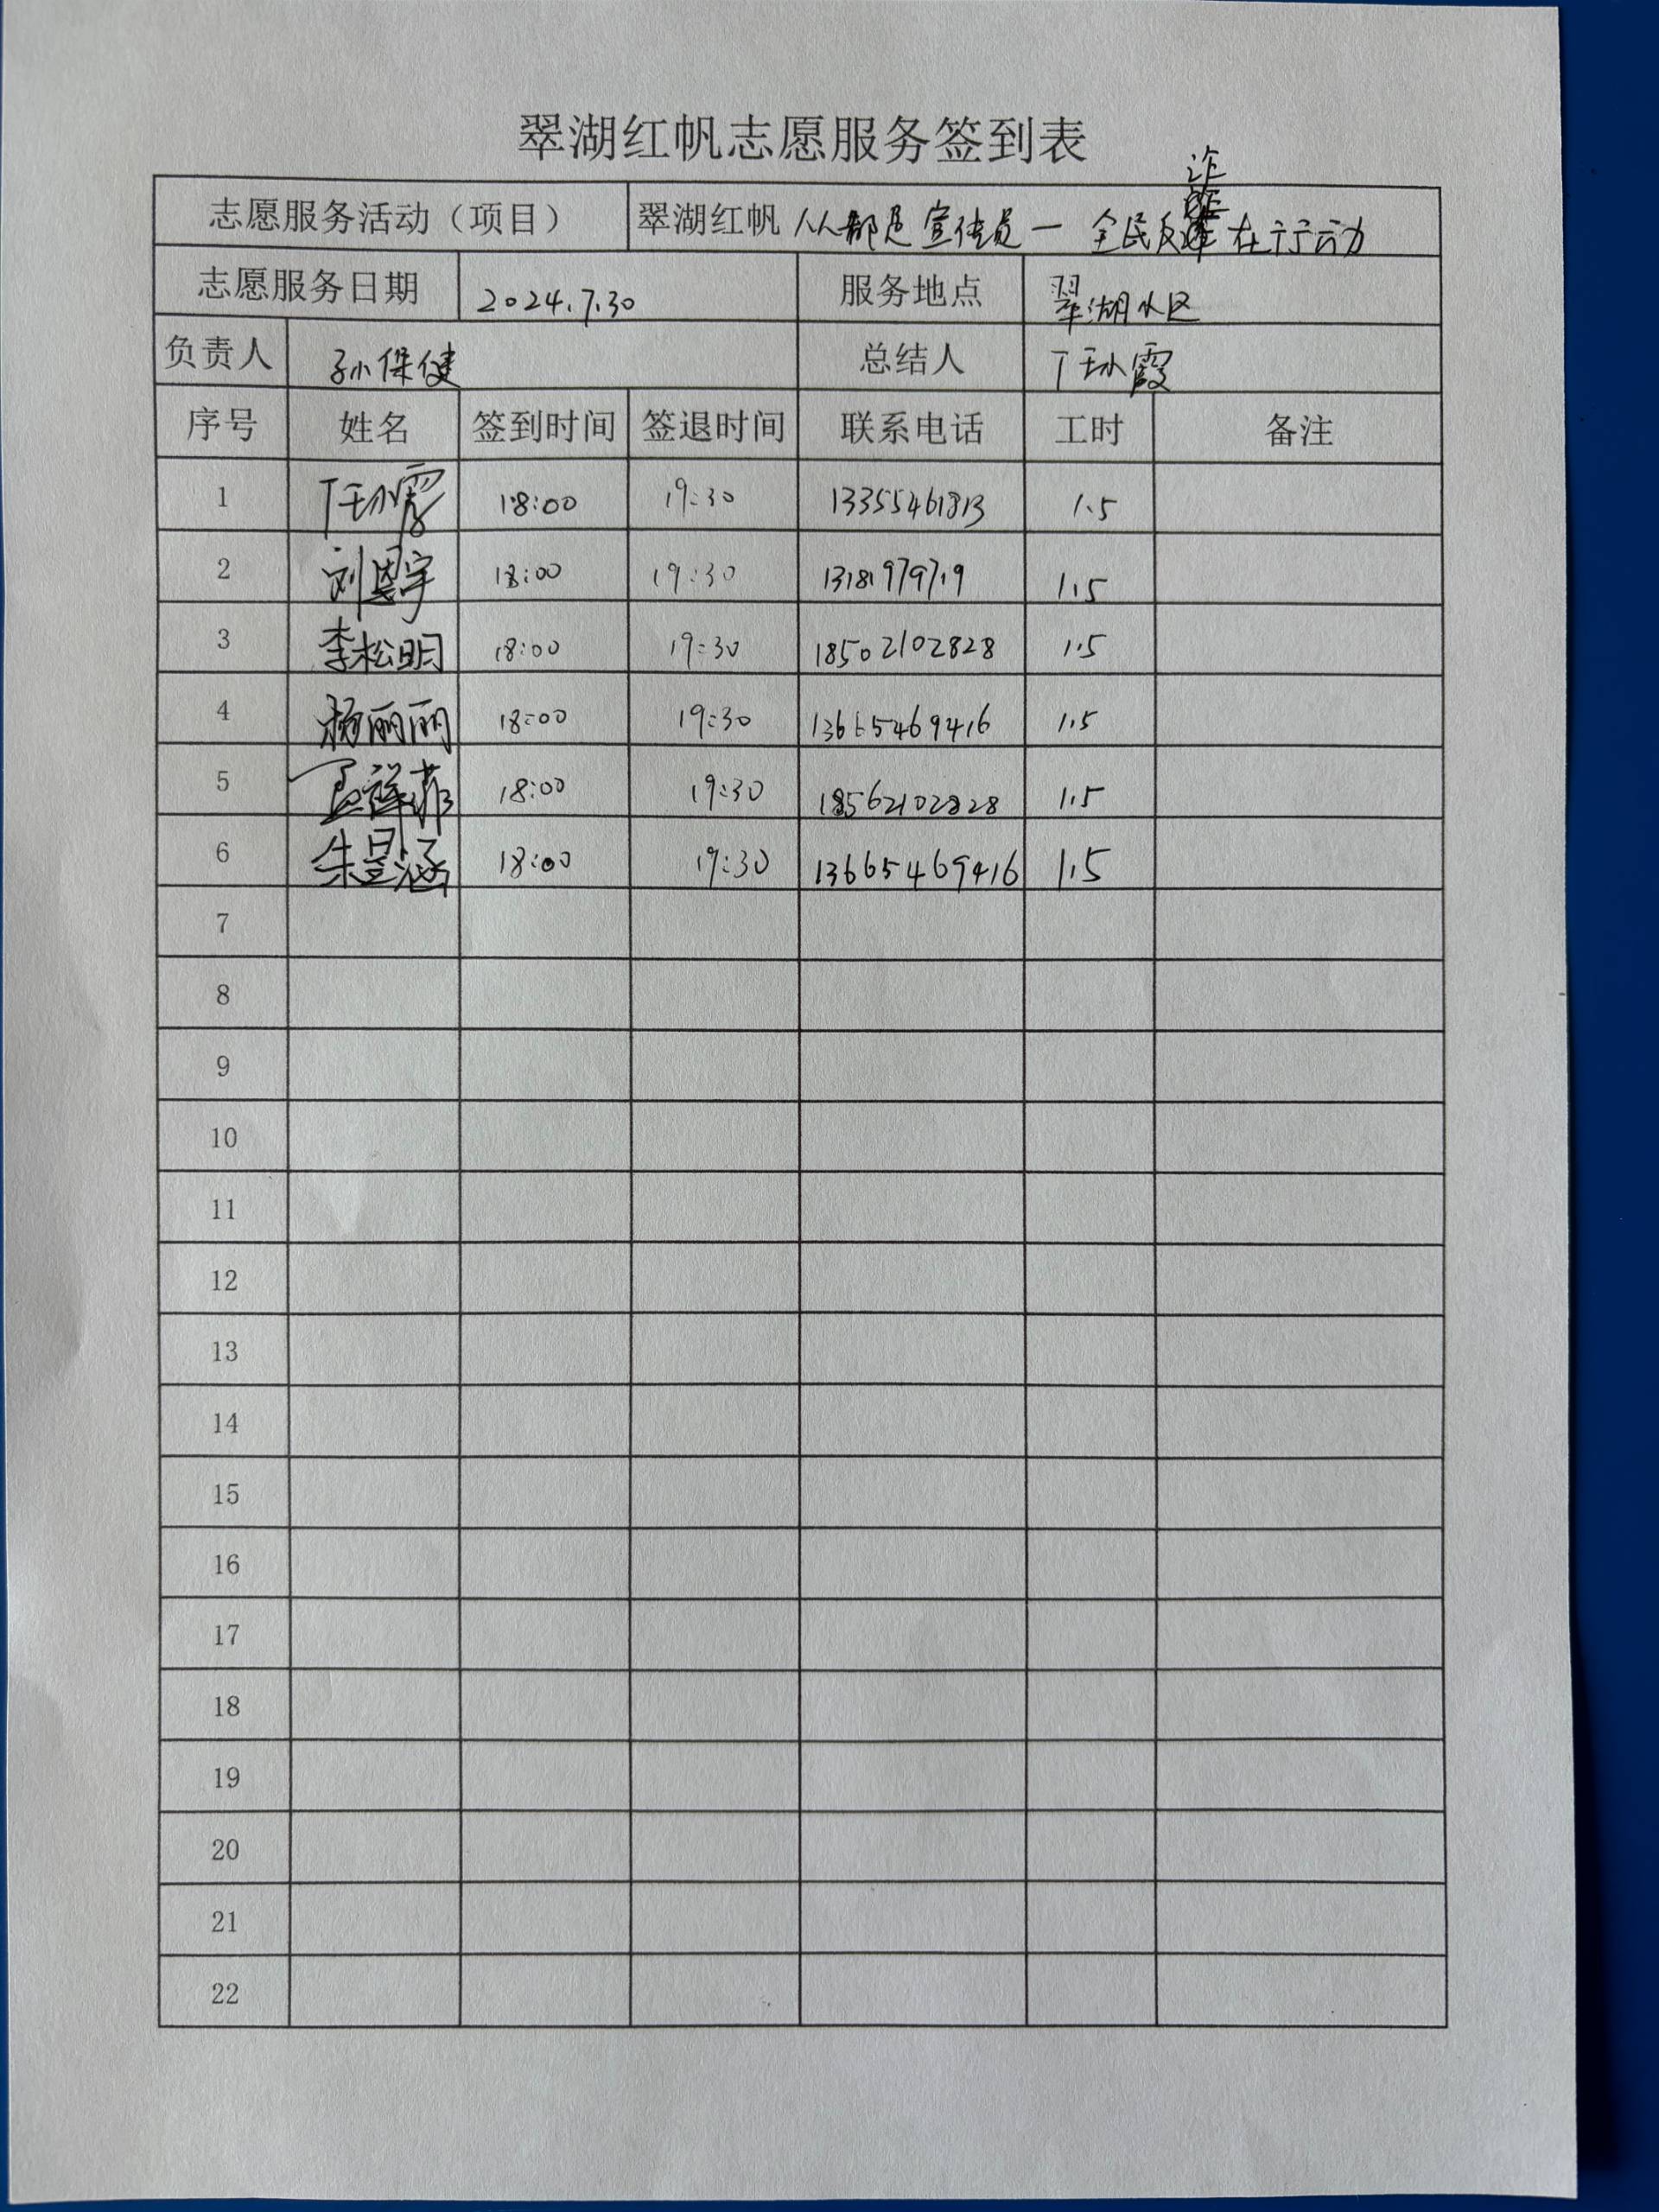 翠湖红帆志愿服务签到表
志愿服务活动（项目） 翠湖红帆 人人都是宣传员一 全民反诈在行动
志愿服务日期 2024.7.30 服务地点 翠湖小区
负责人 孙保健 总结人 丁环霞
序号 姓名 签到时间 签退时间 联系电话 工时 备注
1 丁环霞 18:00 19:30 13355461813 1.5
2 刘恩宇 18:00 19:30 1.5
3 李松明 18:00 19:30 18502102828 1.5
4 杨丽丽 18:00 19:30 13665469416 1.5
5 孟祥菲 18:00 19:30 18562102828 1.5
6 朱昱涵 18:00 19:30 13665469416 1.5
7
8
9
10
11
12
13
14
15
16
17
18
19
20
21
22